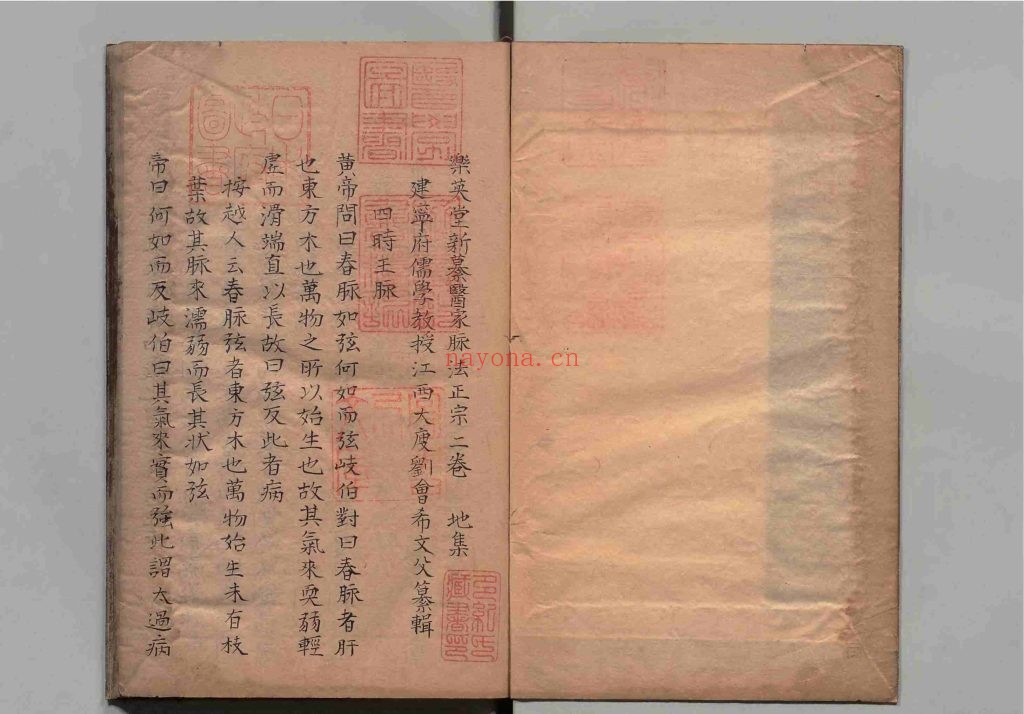 樂英堂新纂醫家脉法正宗二卷 地集
建寧府儒學教授江西大庾劉會希文父纂輯
四時王脉
黃帝問曰春脉如弦何如而弦岐伯對曰春脉者肝
也東方木也萬物之所以始生也故其氣來耎弱輕
虛而滑端直以長故曰弦反此者病
按越人云春脉弦者東方木也萬物始生未有枝
葉故其脉來濡弱而長其狀如弦
帝曰何如而反岐伯曰其氣來實而強此謂太過病
nayona.cn
醫學
圖書
藏書